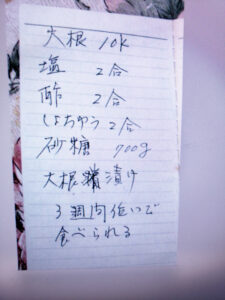 大根 10K
塩 2合
酢 2合
しょちゅう 2合
砂糖 700g
大根 漬け
3週間位いで
食べられる